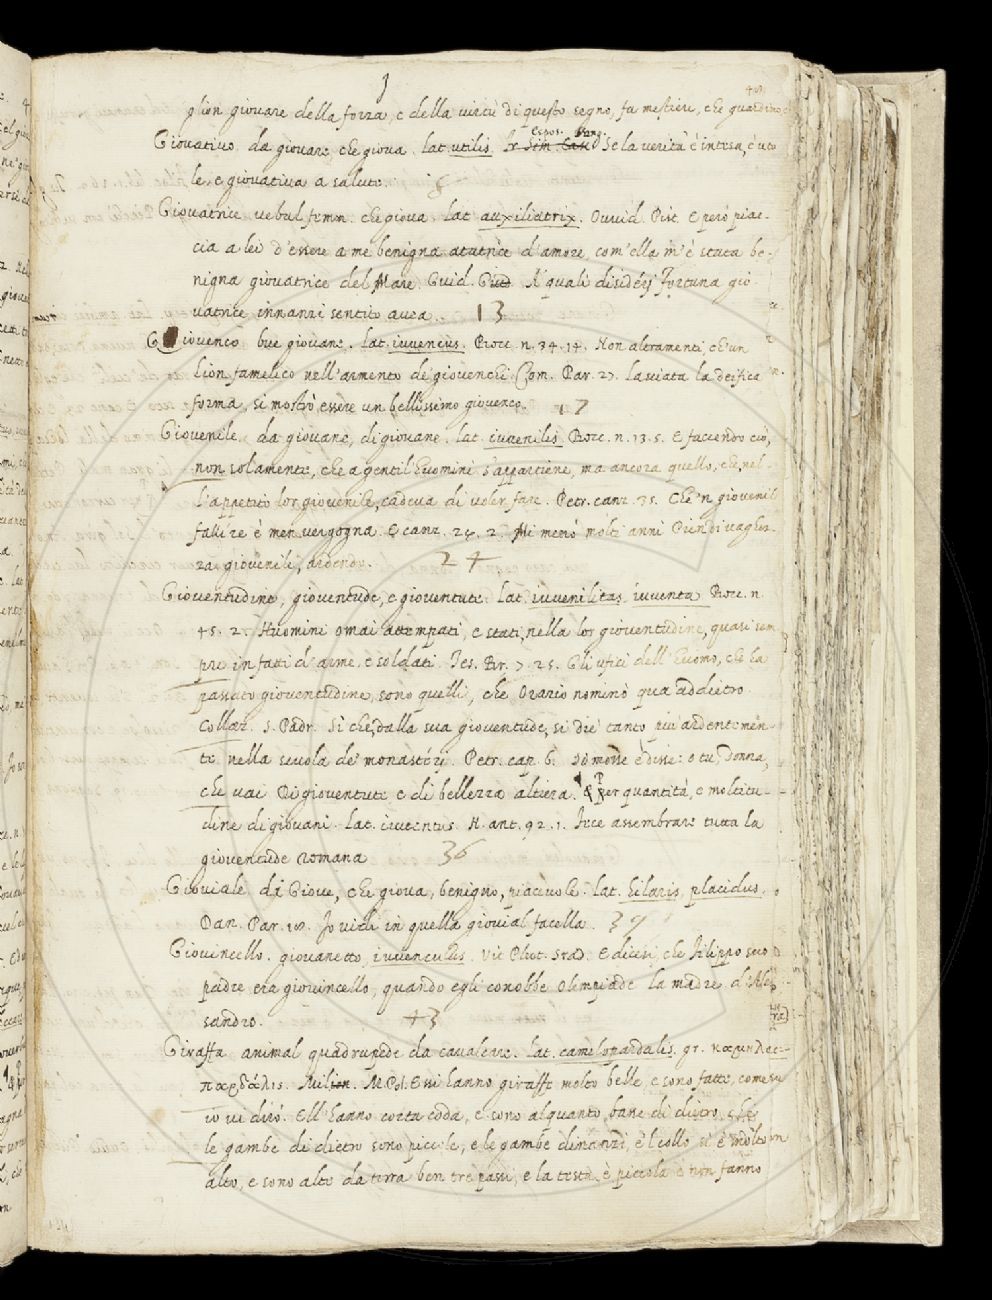 J
glion giovare della forza, e della virtù di questo segno, fa mestiere, che guardino
Giovativo da giovare, che giova. Lat. utilis. Espos. Vang. Se la verità è intesa, è uti
le, e giovativa a salute. 8
Giovatrice verbal femm. che giova. Lat. auxiliatrix. Ovvid. Pist. E però piac-
cia a lei d'essere a me benigna atatrice d'amore, com'ella m'è stata be-
nigna giovatrice del Mare. Guid. Giud. A' quali disidérj Fortuna gio
vatrice innanzi sentito avea. 13
Giovenco bue giovane. Lat. iuvencus. Bocc. n. 34. 14. Non altramenti ch'un
Lion famelico nell'armento di giovenchi. Com. Par. 27. Lasciata la deifica
forma, si mostrò essere un bellissimo giovenco. 17
Giovenile. da giovane, di giovane. Lat. iuvenilis Bocc. n. 13. 5. E facendo ciò,
non solamente, che a gentil Huomini s'appartiene, ma ancora quello, che nel-
l'appetito lor giovenile, cadeva di voler fare. Petr. canz. 35. Che'n giovenil
fallire è men vergogna. E canz. 24. 2. Mi menò molti anni Pien di vaghez-
za giovenile, ardendo. 24
Gioventudine, gioventude, e gioventute. Lat. iuvenilitas, iuventa Bocc. n.
45. 2. Huomini omai attempati, e stati, nella lor gioventudine, quasi sem
pre in fatti d'arme, e soldati. Tes. Br. 7. 25. Gli ufici dell'Huomo, che ha
passato gioventudine, sono quelli, che Orazio nominò qua addietro.
Collaz. S. Padr. Sì che, dalla sua gioventude, si diè tanto più ardentemen-
te nella scuola de' monastérj. Petr. cap. 6. Si mosse, e disse: o tu, Donna,
che vai Di gioventute e di bellezza altiera. ¶ Per quantità, e moltitu-
dine di giovani. Lat. iuventus. N. ant. 92. 1. Fece assembrare tutta la
gioventude Romana 36
Gioviale da Giove, che giova, benigno, piacevole. Lat. hilaris, placidus.
Dan. Par. 18. Io vidi in quella giovial facella. 39
Giovincello. giovanetto, iuvenculus. Vit. Plut. Srad. E dicesi, che Filippo suo
padre era giovincello, quando egli conobbe Olimpiade la madre d'Ales
sandro. 43
Giraffa animal quadrupede da cavalcare. Lat. camelopardalis. gr. καμηλο-
πάρδαλις. Milion. M. Pol. Essi hanno giraffe molto belle, e sono fatte, come
io vi dirò. Ell'hanno corta coda, e sono alquanto basse di dietro, che
le gambe di dietro sono piccole, e le gambe dinanzi, e'l collo si è molto
alto, e sono alte da terra ben tre passi, e la testa è piccola e non fanno